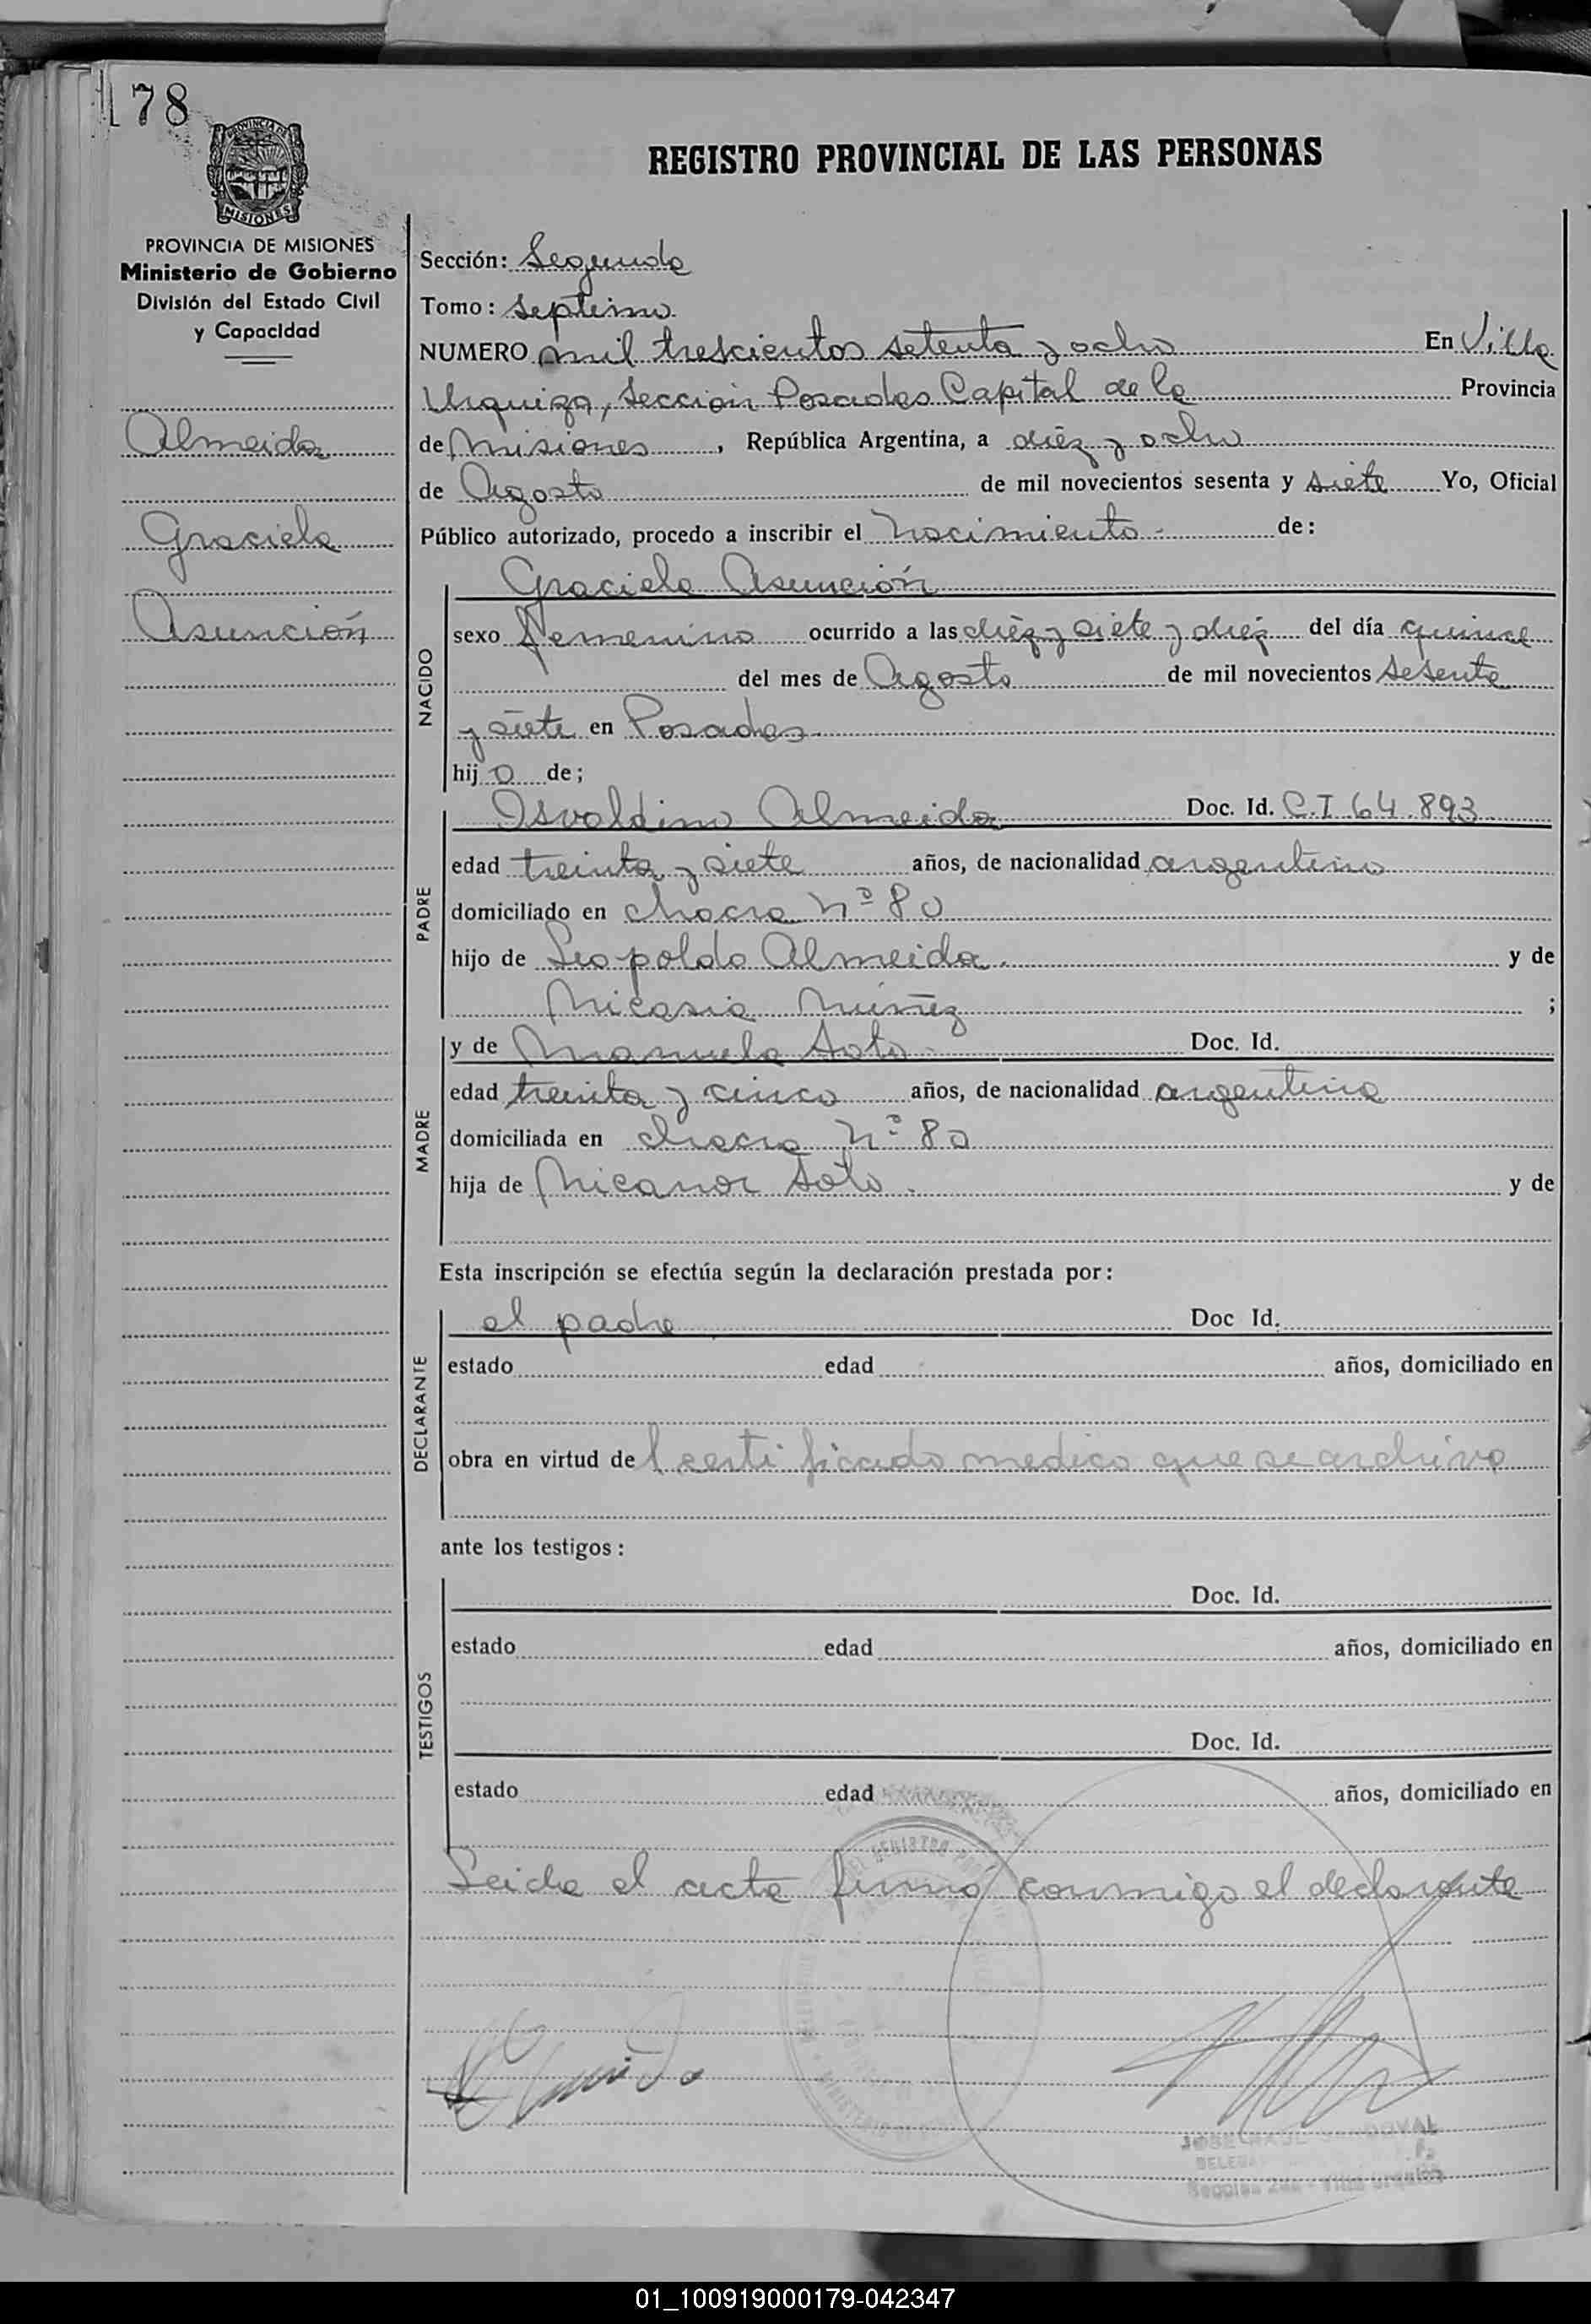 178
PROVINCIA DE
MISIONES
REGISTRO PROVINCIAL DE LAS PERSONAS
PROVINCIA DE MISIONES
Ministerio de Gobierno
División del Estado Civil
y Capacidad
Almeida
Graciela
Asunción
Sección: Segunda
Tomo: Septimo
NUMERO mil trescientos setenta y ocho En Villa
Urquiza, Sección Posadas Capital de la Provincia
de Misiones, República Argentina, a diéz y ocho
de Agosto de mil novecientos sesenta y siete Yo, Oficial
Público autorizado, procedo a inscribir el Nacimiento - de:
NACIDO
Graciela Asunción
sexo femenino ocurrido a las diéz y siete y diéz del día quince
del mes de Agosto de mil novecientos sesenta
y siete en Posadas
hij a de;
PADRE
Osvaldino Almeida Doc. Id. C.I 64.893
edad treinta y siete años, de nacionalidad argentino
domiciliado en chacra Nº 80
hijo de Leopoldo Almeida. y de
Nicasia Núñez ;
MADRE
y de Manuela Soto - Doc. Id.
edad treinta y cinco años, de nacionalidad argentina
domiciliada en chacra Nº 80
hija de Nicanor Soto. y de
Esta inscripción se efectúa según la declaración prestada por:
DECLARANTE
el padre Doc Id.
estado edad años, domiciliado en
obra en virtud del certificado medico que se archiva
ante los testigos:
TESTIGOS
Doc. Id.
estado edad años, domiciliado en
Doc. Id.
estado edad años, domiciliado en
Leida el acta firmó conmigo el declarante
Almeida
JOSE RAUL SANDOVAL
Sección 2da - Villa Urquiza
01_100919000179-042347